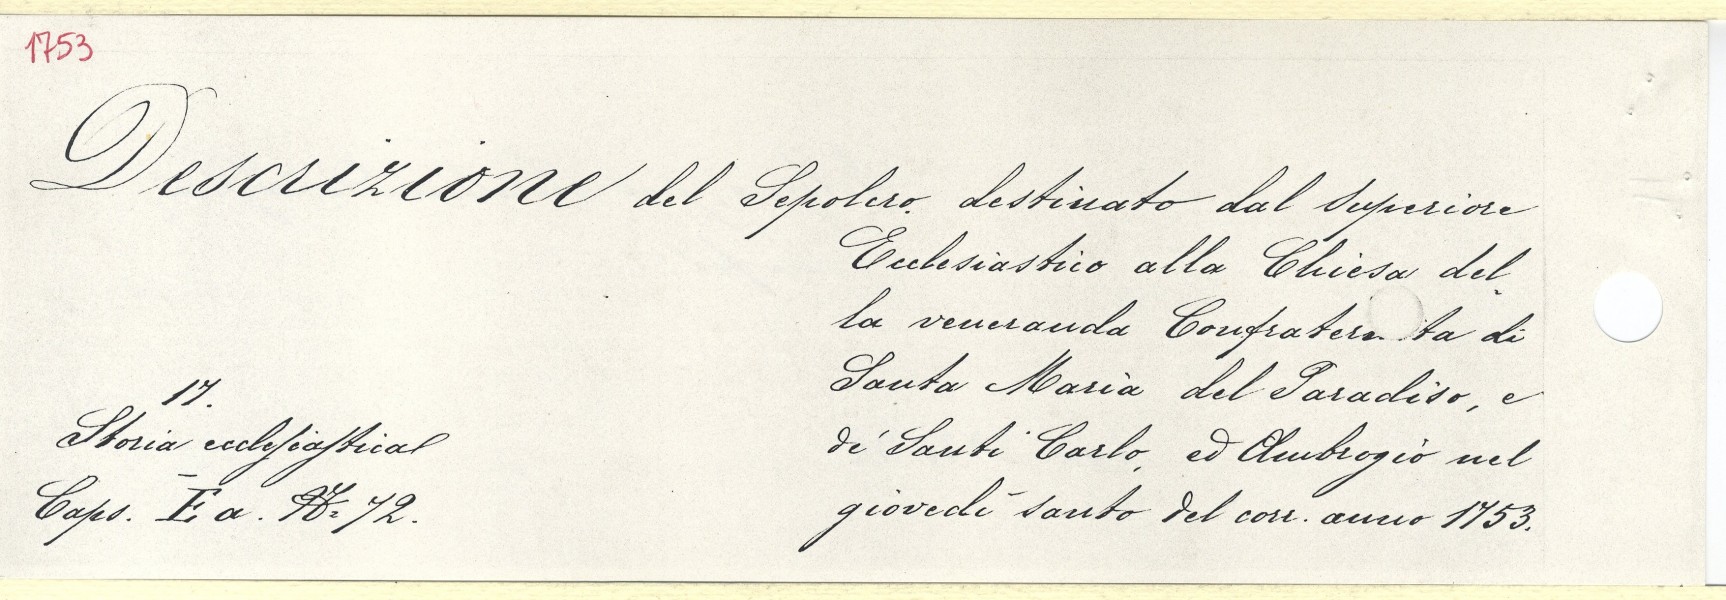 1753
Descrizione del Sepolcro destinato dal Superiore
Ecclesiastico alla Chiesa del-
la veneranda Confratern ta di
Santa Maria del Paradiso, e
de' Santi Carlo, ed Ambrogio nel
giovedì santo del corr. anno 1753.
17.
Storia ecclesiastical
Caps. E a. N: 72.